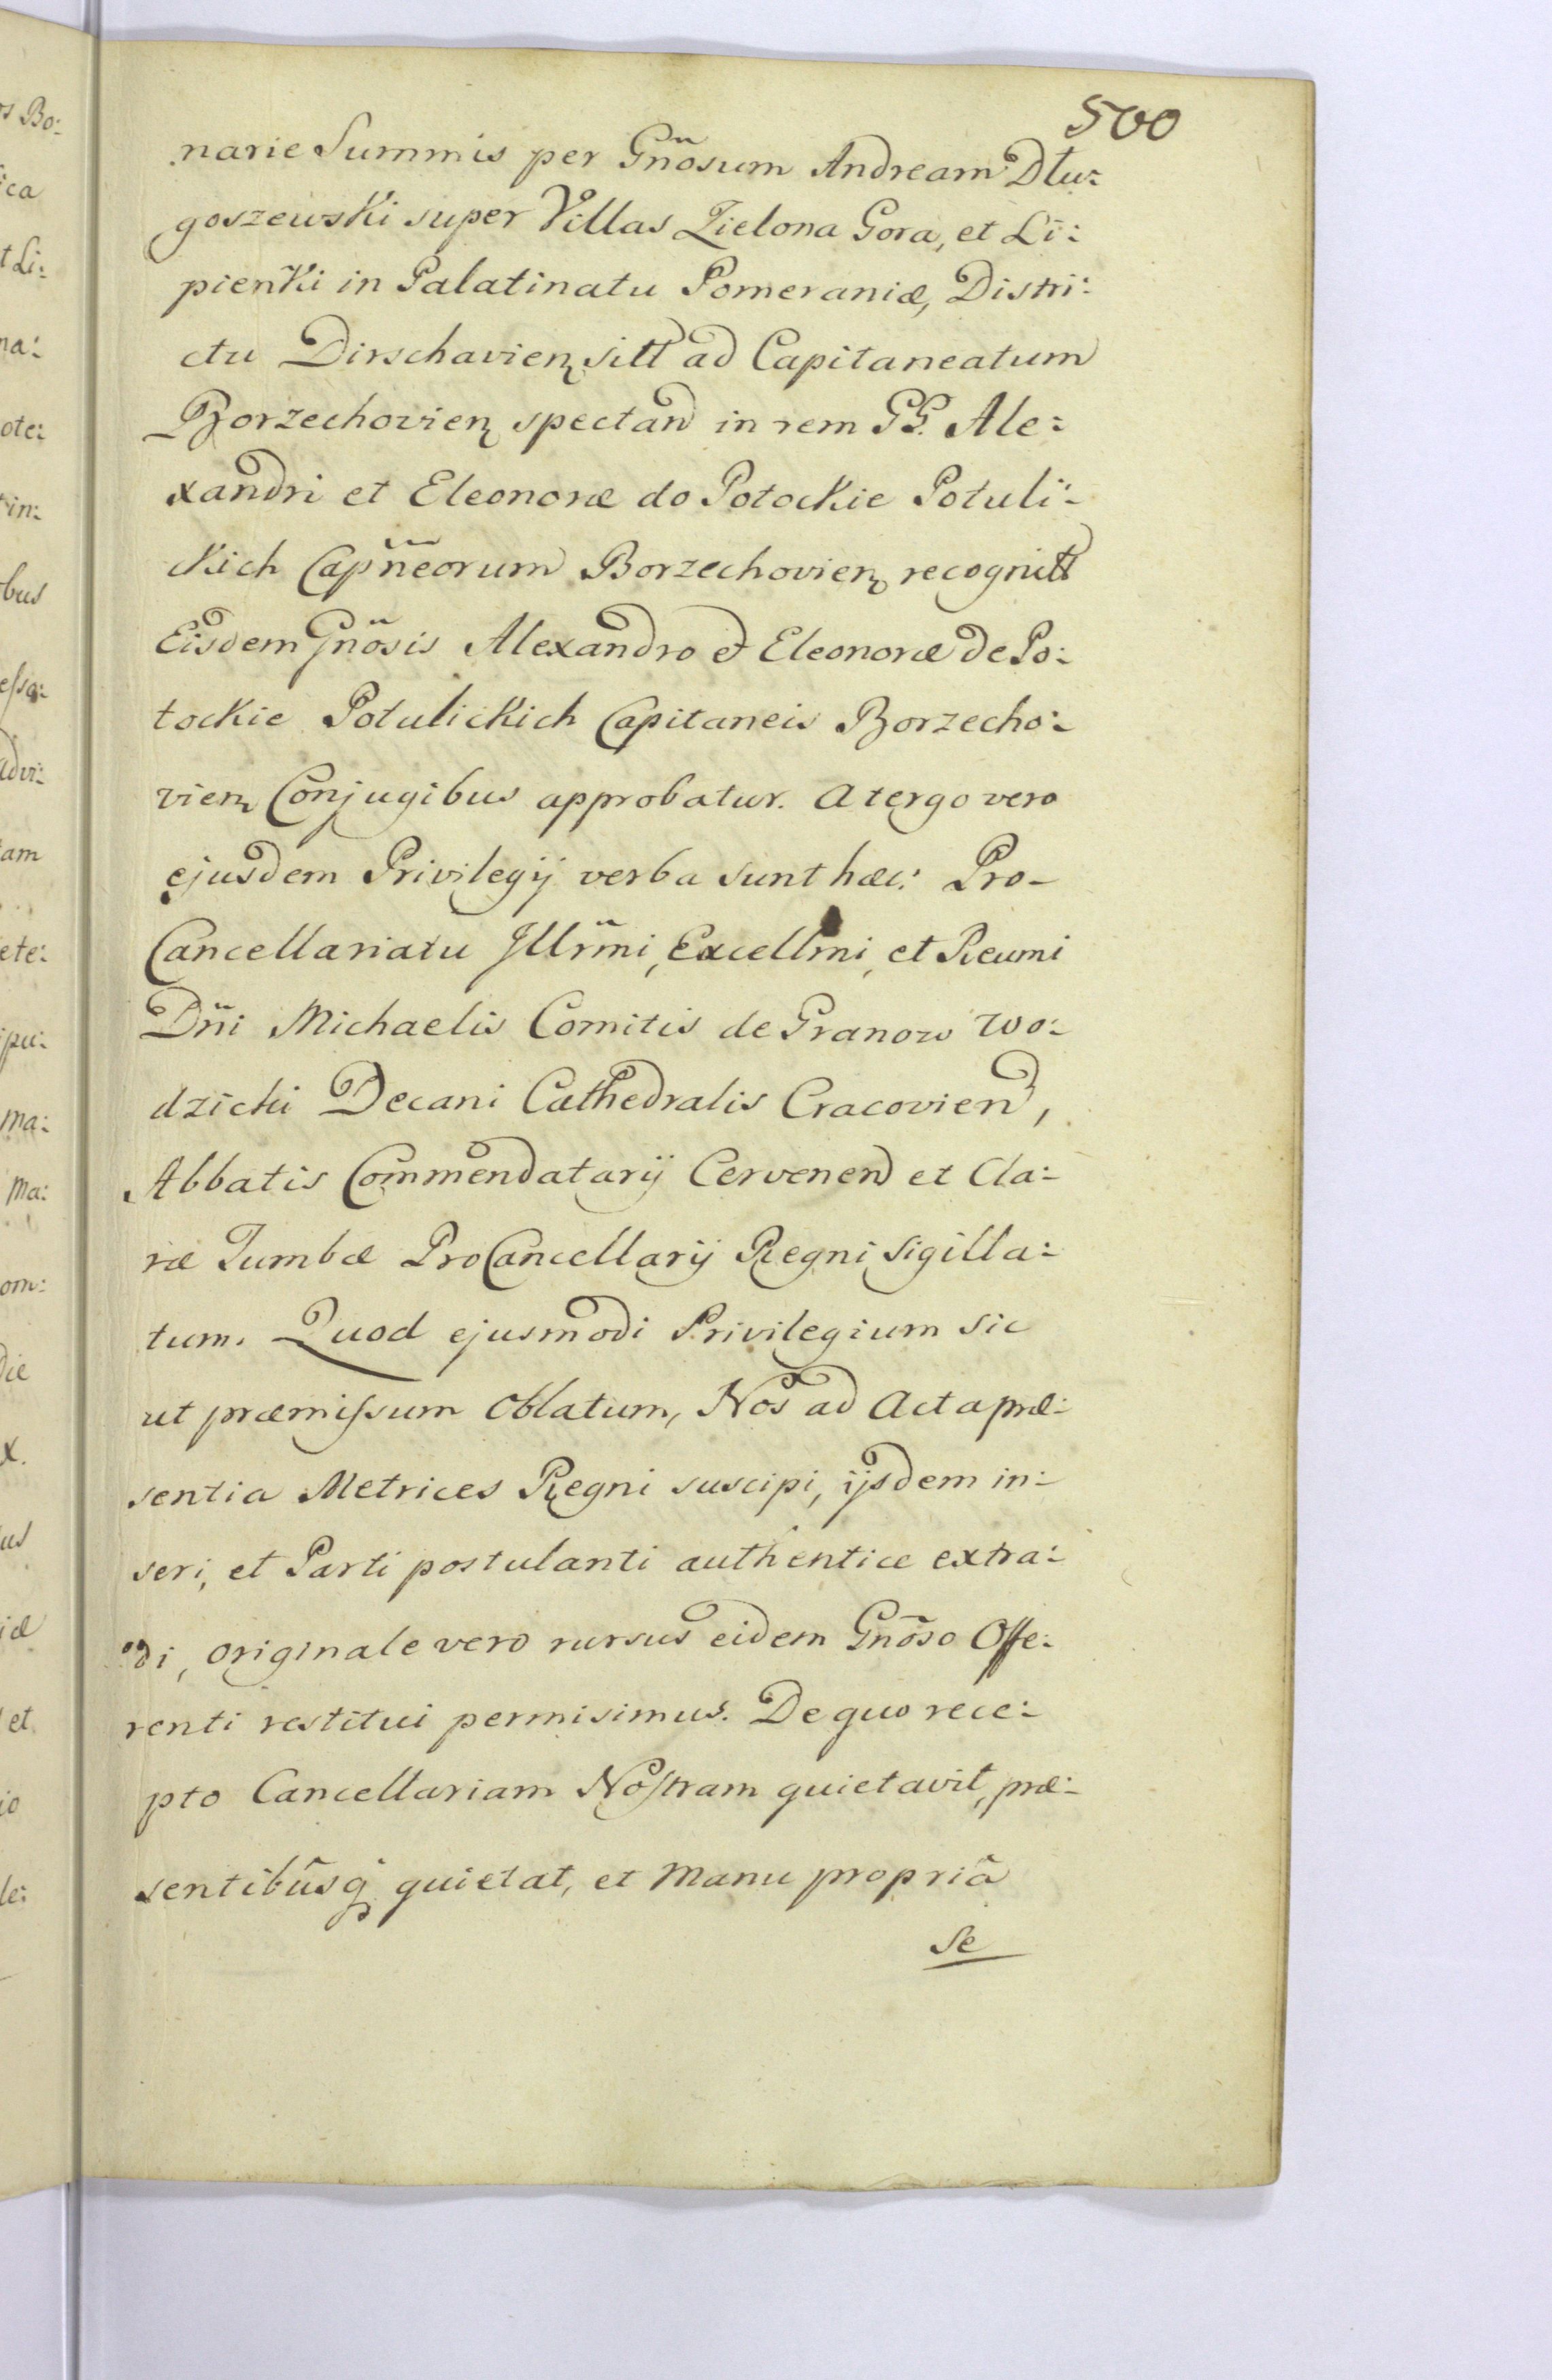 500
narie Summis per Gñosum Andream Dłu:
goszewski super Villas Zielona Gora, et Li:
pienki in Palatinatu Pomeraniæ, Distri:
ctu Dirschavien sitt ad Capitaneatum
Borzechovien spectand in rem GG. Ale:
xandri et Eleonoræ do Potockie Potuli:
ckich Capñeorum Borzechovien recognitt
Eisdem Gnõsis Alexandro et Eleonoræ de Po:
tockie Potulickich Capitaneis Borzecho:
vien Conjugibus approbatur. A tergo vero
ejusdem Privilegij verba sunt hæc: Pro-
Cancellariatu Jllrm̃i, Excellmi, et Reumi
Dñi Michaelis Comitis de Granow Wo:
dzicki Decani Cathedralis Cracovien,
Abbatis Commendatarij Cervenen et Cla:
ræ Tumbæ ProCancellarij Regni, sigilla:
tum. Quod ejusmodi Privilegium sic
ut præmissum oblatum, Nos ad Acta præ:
sentia Metrices Regni suscipi, ijsdem in:
seri, et Parti postulanti authentice extra:
di, originale vero rursus eidem Gnõso Offe:
renti restitui permisimus. De quo rece:
pto Cancellariam Nostram quietavit, præ:
sentibusq quietat, et Manu propriâ
Se